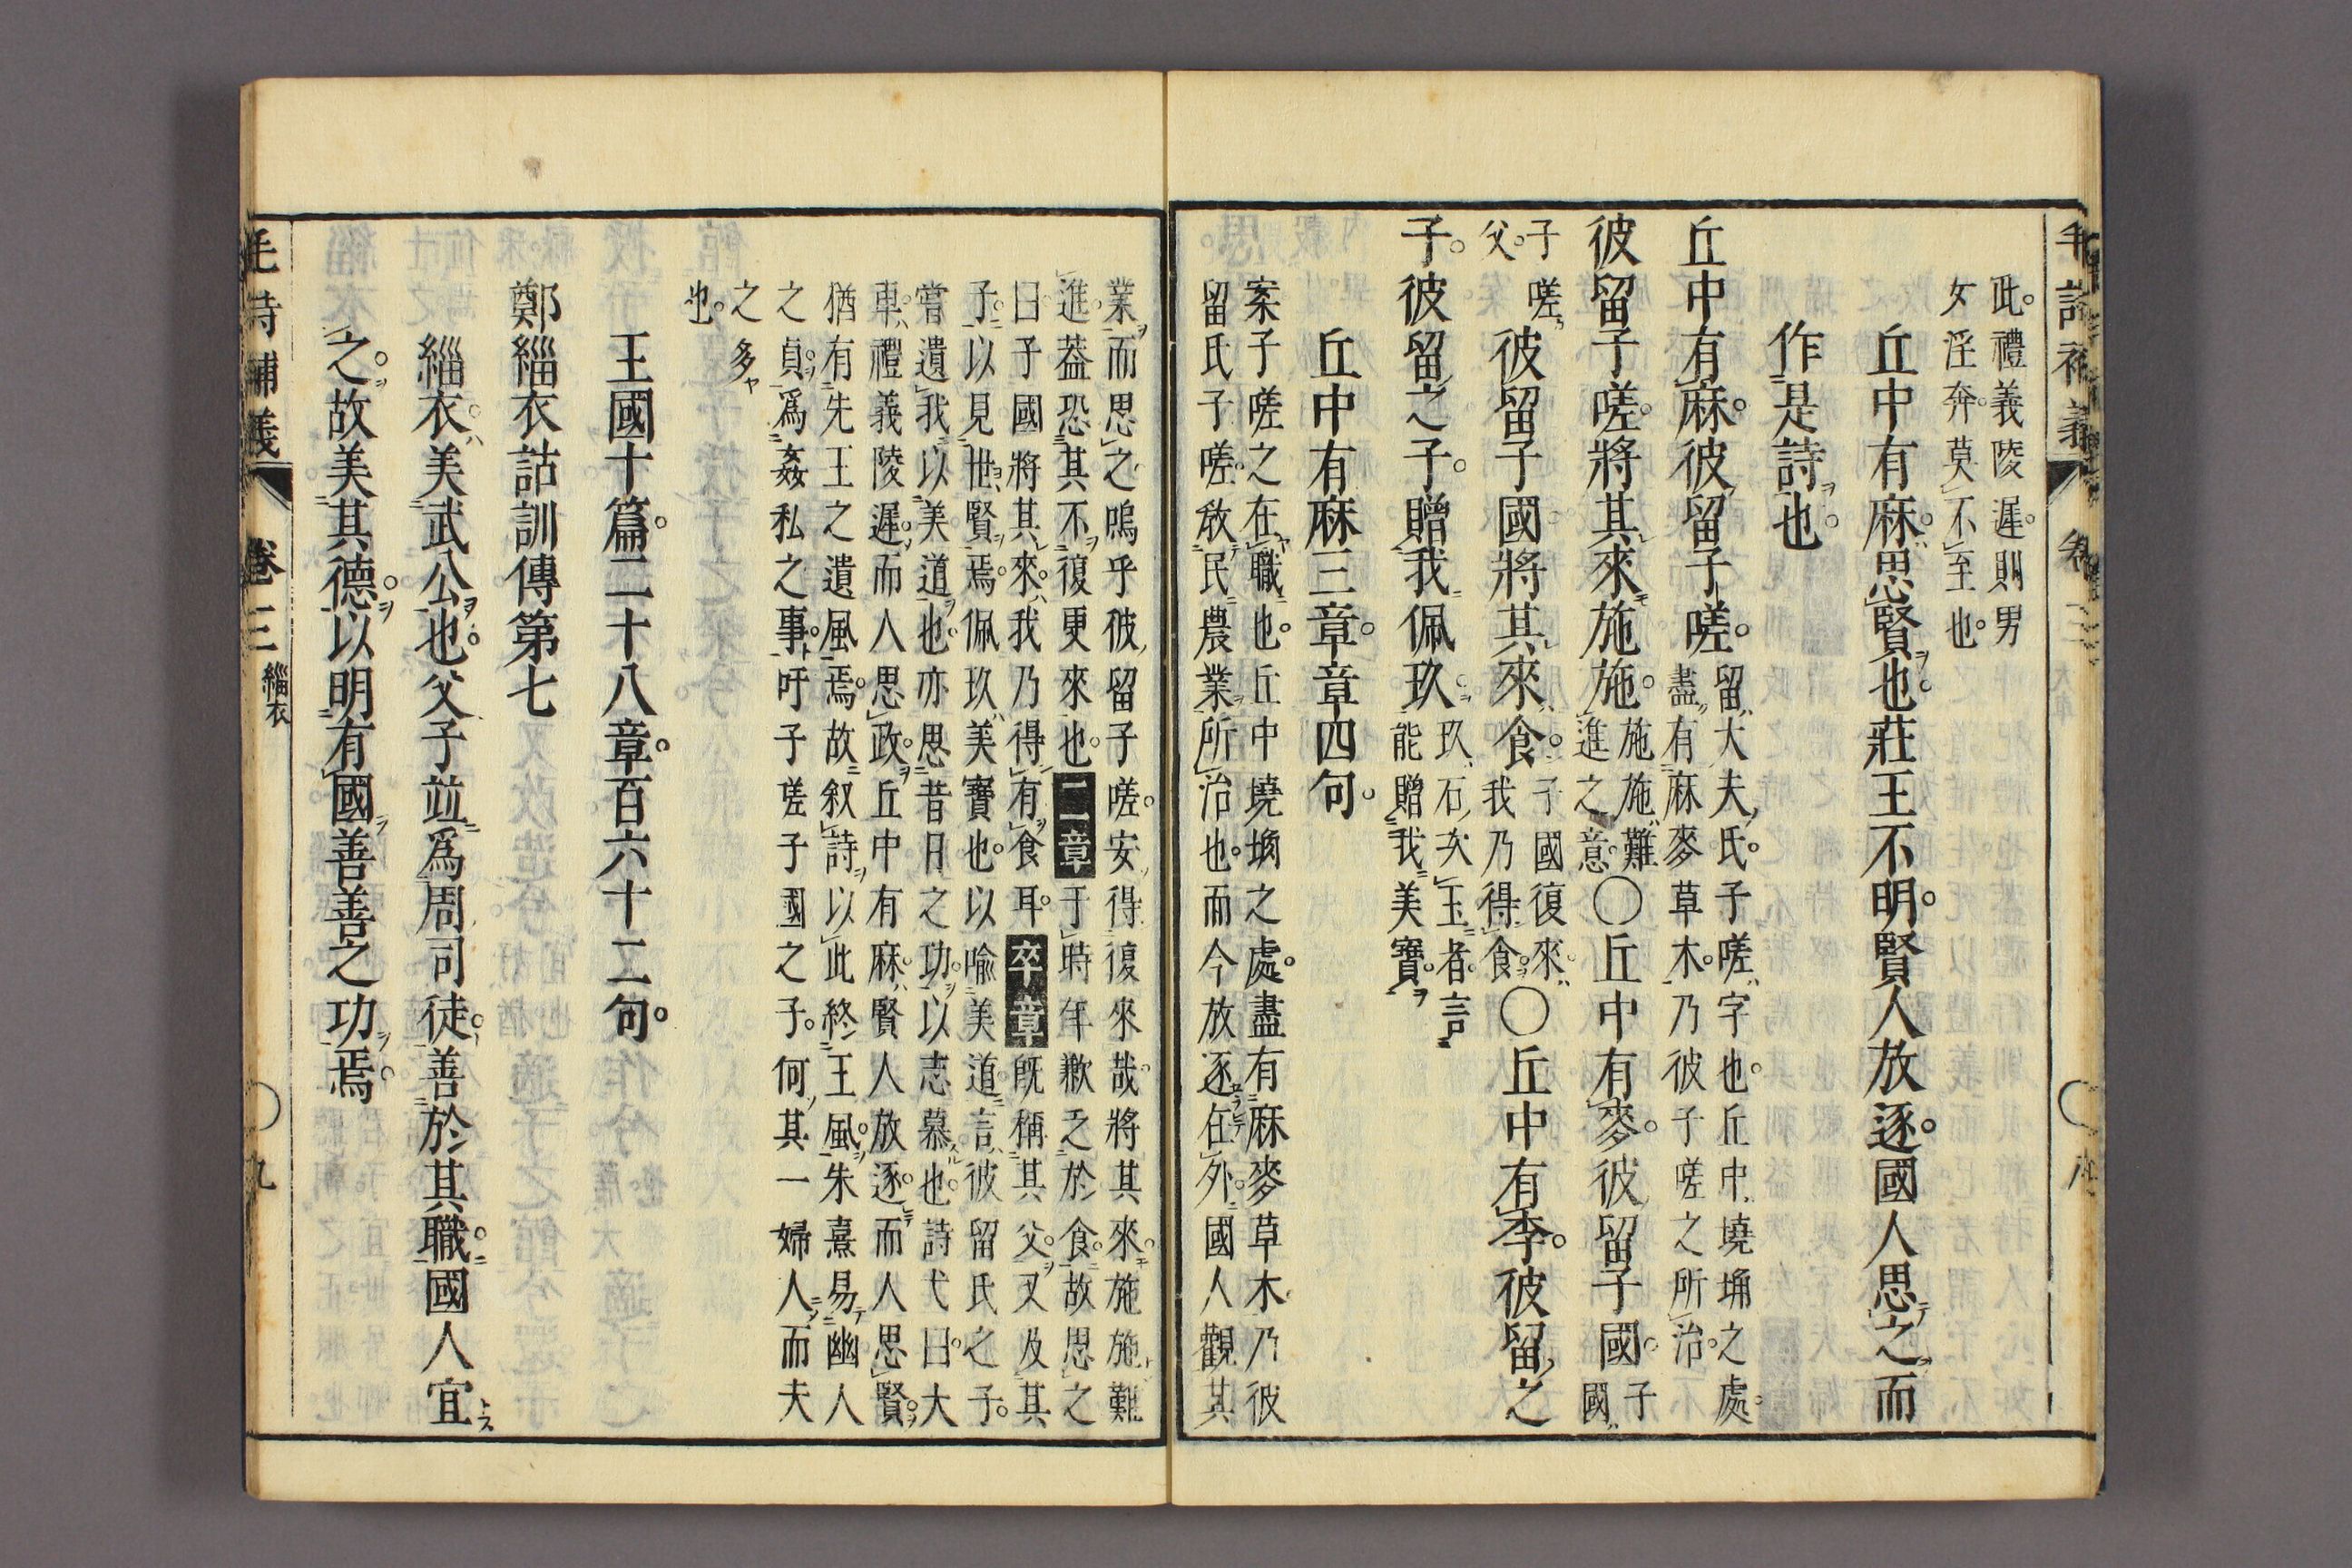 毛詩補義 卷三 八
此禮義陵遲則男
女淫奔莫不至也
丘中有麻思賢也莊王不明賢人放逐國人思之而
作是詩也
丘中有麻彼留子嗟留大夫氏子嗟字也丘中墝埆之處
盡有麻麥草木乃彼子嗟之所治
彼留子嗟將其來施施施施難
進之意〇丘中有麥彼留子國子
國
子嗟
父彼留子國將其來食子國復來
我乃得食〇丘中有李彼留之
子彼留之子贈我佩玖玖石次玉者言
能贈我美寶
丘中有麻三章章四句
案子嗟之在職也丘中墝埆之處盡有麻麥草木乃彼
留氏子嗟敎民農業所治也而今放逐在外國人觀其
業而思之嗚乎彼留子嗟安得復來哉將其來施施難
進蓋恐其不復更來也二章于時年歉乏於食故思之
曰子國將其來我乃得有食耳卒章既稱其父又及其
子以見世賢焉佩玖美寶也以喻美道言彼留氏之子
嘗遺我以美道也亦思昔日之功以志慕也詩弋曰大
車禮義陵遲而人思政丘中有麻賢人放逐而人思賢
猶有先王之遺風焉故叙詩以此終王風朱熹易幽人
之貞爲姦私之事吁子嗟子國之子何其一婦人而夫
之多
也
王國十篇二十八章百六十二句
鄭緇衣詁訓傳第七
緇衣美武公也父子竝爲周司徒善於其職國人宜
之故美其德以明有國善善之功焉
毛詩補義 卷三 緇衣 九